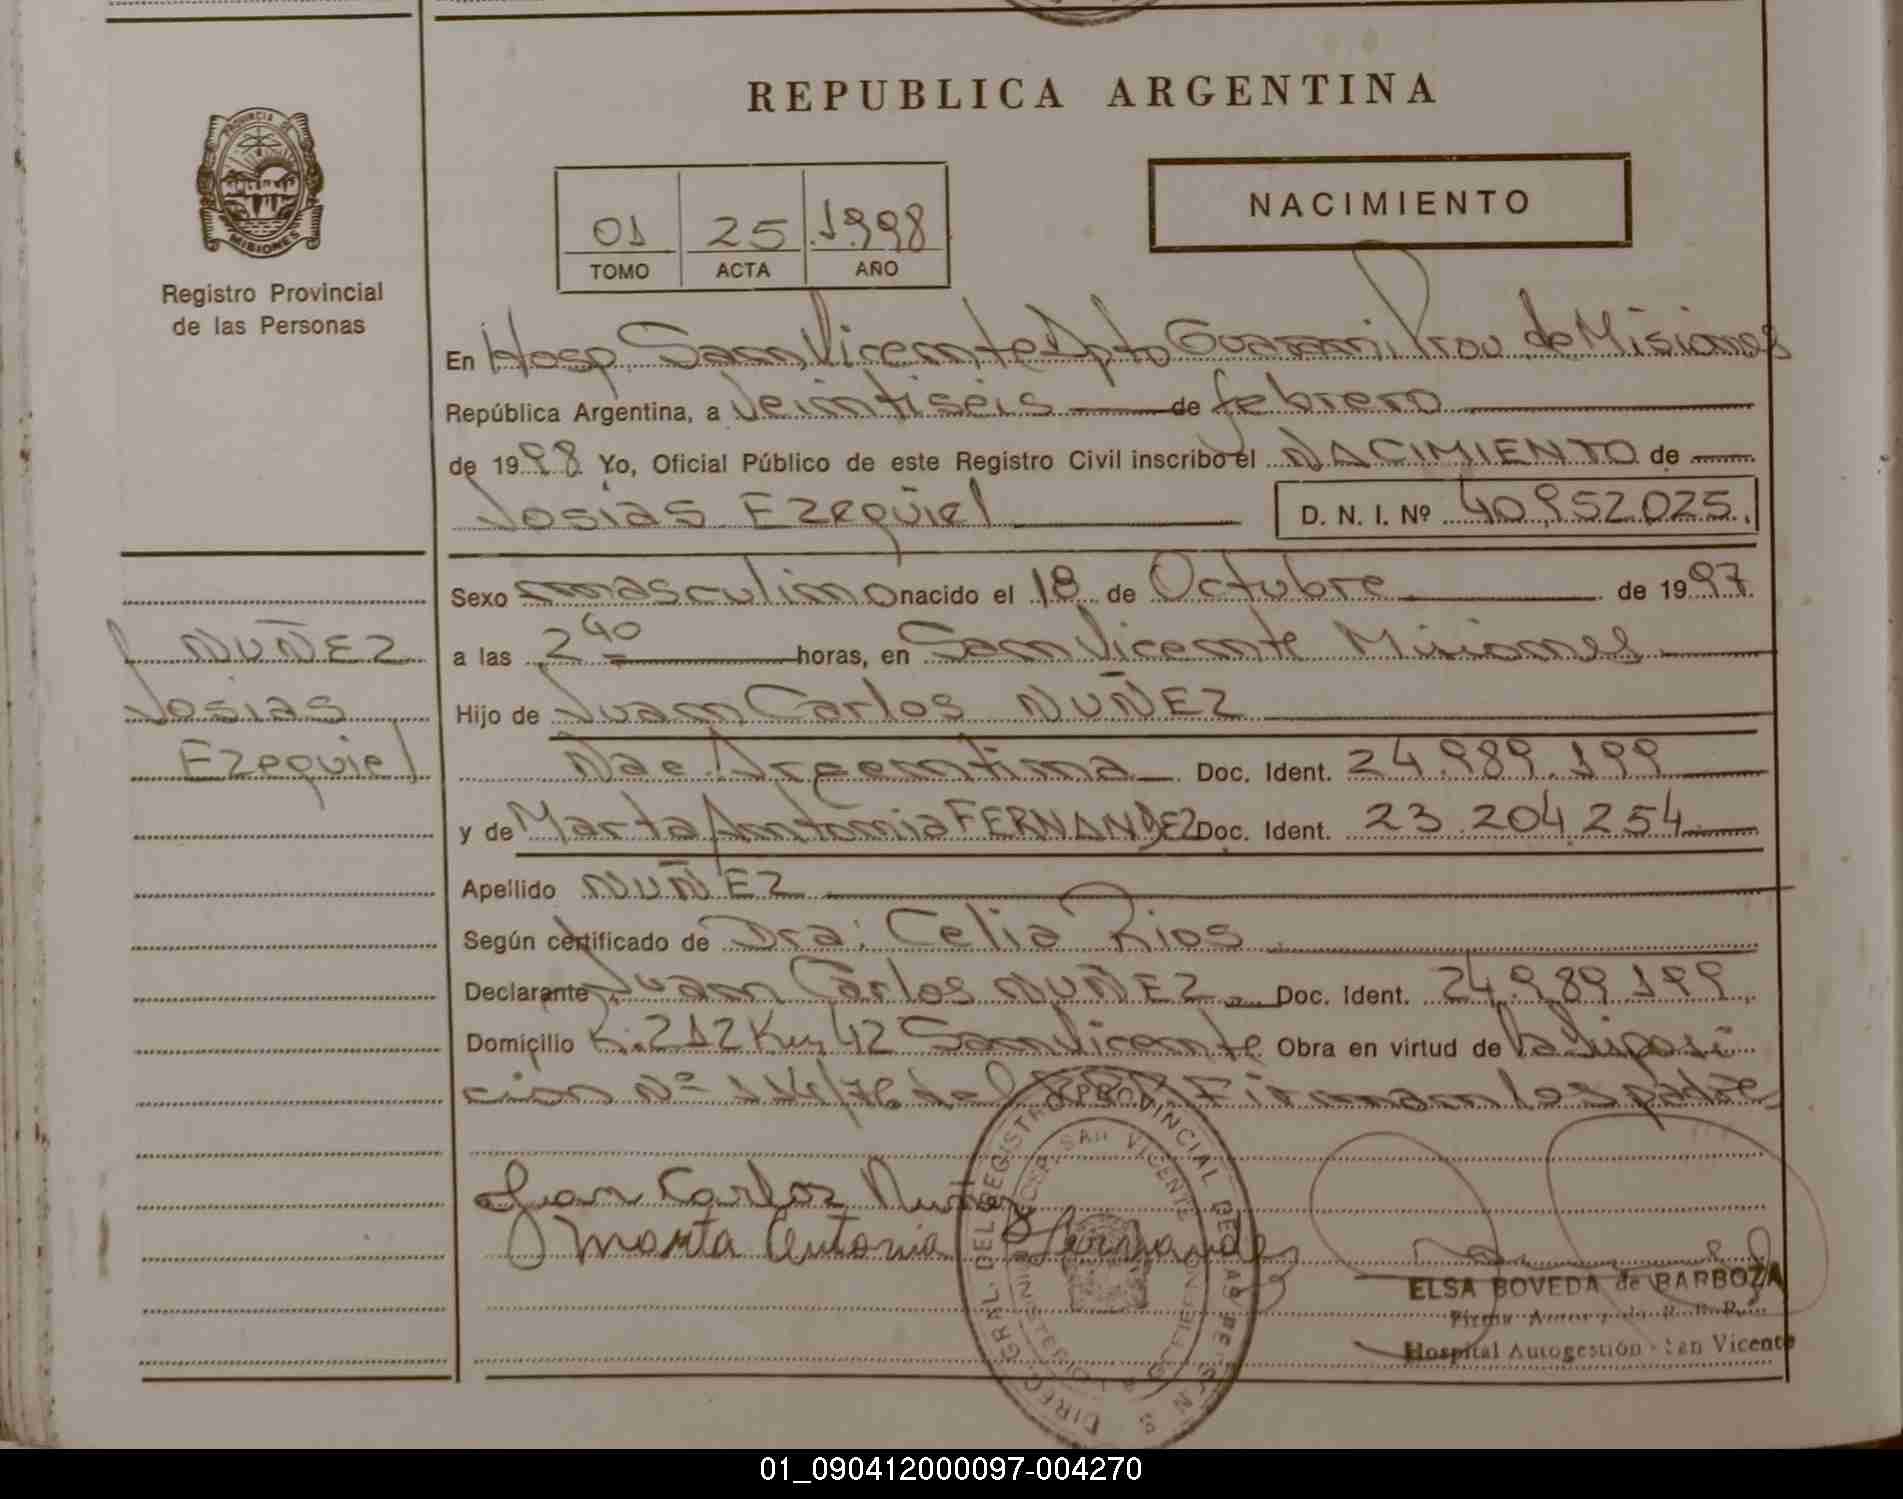 REPUBLICA ARGENTINA
PROVINCIA DE
MISIONES
Registro Provincial
de las Personas
01 25 1998
TOMO ACTA AÑO
NACIMIENTO
En Hosp. San Vicente Dpto Guarani Prov de Misiones
República Argentina, a Veintiseis de febrero
de 1998 Yo, Oficial Público de este Registro Civil inscribo el NACIMIENTO de
Josias Ezequiel D. N. I. Nº 40.952.025.
Sexo masculino nacido el 18 de Octubre de 1997
a las 2 40 horas, en San Vicente Misiones
Hijo de Juan Carlos NUÑEZ
Nac. Argentina Doc. Ident. 24.989.199
y de Marta Antonia FERNANDEZ Doc. Ident. 23.204.254
Apellido NUÑEZ
Según certificado de Dra: Celia Rios
Declarante Juan Carlos NUÑEZ Doc. Ident. 24.989.199
Domicilio R. 212 Km 42 San Vicente Obra en virtud de la Disposi
cion Nº 114/76 del Firman los padres
NUÑEZ
Josias
Ezequiel
Juan Carlos Nuñez
Marta Antonia Fernandez
DIREC. GRAL. DEL REGISTRO PROVINCIAL DE LAS PERSONAS
HOSP. SAN VICENTE
ELSA BOVEDA de BARBOZA
Hospital Autogestión - San Vicente
01_090412000097-004270